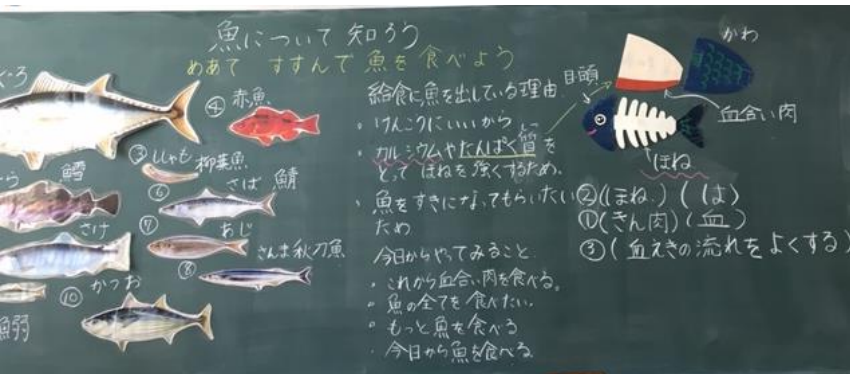 魚について知ろう
めあて すすんで魚を食べよう
ぐろ
④ 赤魚
③ ししゃも 柳葉魚
ら 鱈
⑥ さば 鯖
さけ
⑦ あじ
⑧ さんま 秋刀魚
⑩ かつお
鰯
給食に魚を出している理由
・けんこうにいいから
・カルシウムやたんぱく質を
とってほねを強くするため。
・魚をすきになってもらいたい
ため
今日からやってみること
・これから血合い肉を食べる。
・魚の全てを食べたい。
・もっと魚を食べる
・今日から魚を食べる
かわ
目頭
血合い肉
ほね
②(ほね)(は)
①(きん肉)(血)
③(血えきの流れをよくする)